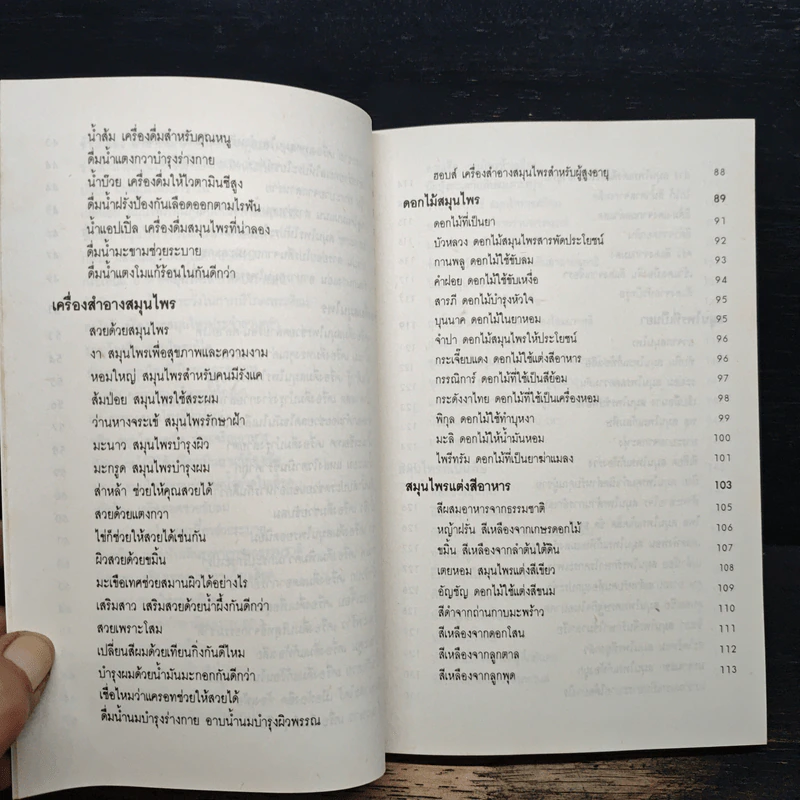 น้ำส้ม เครื่องดื่มสำหรับคุณหนู
ดื่มน้ำแตงกวาบำรุงร่างกาย
น้ำบ๊วย เครื่องดื่มให้ไวตามินซีสูง
ดื่มน้ำฝรั่งป้องกันเลือดออกตามไรฟัน
น้ำแอปเปิ้ล เครื่องดื่มสมุนไพรที่น่าลอง
ดื่มน้ำมะขามช่วยระบาย
ดื่มน้ำแตงโมแก้ร้อนในกันดีกว่า
เครื่องสำอางสมุนไพร
สวยด้วยสมุนไพร
งา สมุนไพรเพื่อสุขภาพและความงาม
หอมใหญ่ สมุนไพรสำหรับคนมีรังแค
ส้มป่อย สมุนไพรใช้สระผม
ว่านหางจระเข้ สมุนไพรรักษาฝ้า
มะนาว สมุนไพรบำรุงผิว
มะกรูด สมุนไพรบำรุงผม
ส่าเหล้า ช่วยให้คุณสวยได้
สวยด้วยแตงกวา
ไข่ก็ช่วยให้สวยได้เช่นกัน
ผิวสวยด้วยขมิ้น
มะเขือเทศช่วยสมานผิวได้อย่างไร
เสริมสาว เสริมสวยด้วยน้ำผึ้งกันดีกว่า
สวยเพราะโสม
เปลี่ยนสีผมด้วยเทียนกิ่งกันดีไหม
บำรุงผมด้วยน้ำมันมะกอกกันดีกว่า
เชื่อไหมว่าแครอทช่วยให้สวยได้
ดื่มน้ำนมบำรุงร่างกาย อาบน้ำนมบำรุงผิวพรรณ
ฮอบส์ เครื่องสำอางสมุนไพรสำหรับผู้สูงอายุ 88
ดอกไม้สมุนไพร 89
ดอกไม้ที่เป็นยา 91
บัวหลวง ดอกไม้สมุนไพรสารพัดประโยชน์ 92
กานพลู ดอกไม้ใช้ขับลม 93
คำฝอย ดอกไม้ใช้ขับเหงื่อ 94
สารภี ดอกไม้บำรุงหัวใจ 95
บุนนาค ดอกไม้ในยาหอม 95
จำปา ดอกไม้สมุนไพรให้ประโยชน์ 96
กระเจี๊ยบแดง ดอกไม้ใช้แต่งสีอาหาร 96
กรรณิการ์ ดอกไม้ที่ใช้เป็นสีย้อม 97
กระดังงาไทย ดอกไม้ที่ใช้เป็นเครื่องหอม 98
พิกุล ดอกไม้ใช้ทำบุหงา 99
มะลิ ดอกไม้ให้น้ำมันหอม 100
ไพรีทรัม ดอกไม้ที่เป็นยาฆ่าแมลง 101
สมุนไพรแต่งสีอาหาร 103
สีผสมอาหารจากธรรมชาติ 105
หญ้าฝรั่น สีเหลืองจากเกษรดอกไม้ 106
ขมิ้น สีเหลืองจากลำต้นใต้ดิน 107
เตยหอม สมุนไพรแต่งสีเขียว 108
อัญชัญ ดอกไม้ใช้แต่งสีขนม 109
สีดำจากถ่านกาบมะพร้าว 110
สีเหลืองจากดอกโสน 111
สีเหลืองจากลูกตาล 112
สีเหลืองจากลูกพุด 113